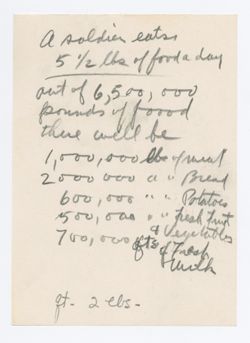 A soldier eats
5 1/2 lbs of food a day
out of 6,500,000
pounds of foood
there will be
1,000,000 lbs of meat
2000000 " " Bread
600,000 " " Potatoes
500,000 " " Fresh Fruit
& Vegetables
700,000 qts of Fresh
Milk
qt - 2 lbs -